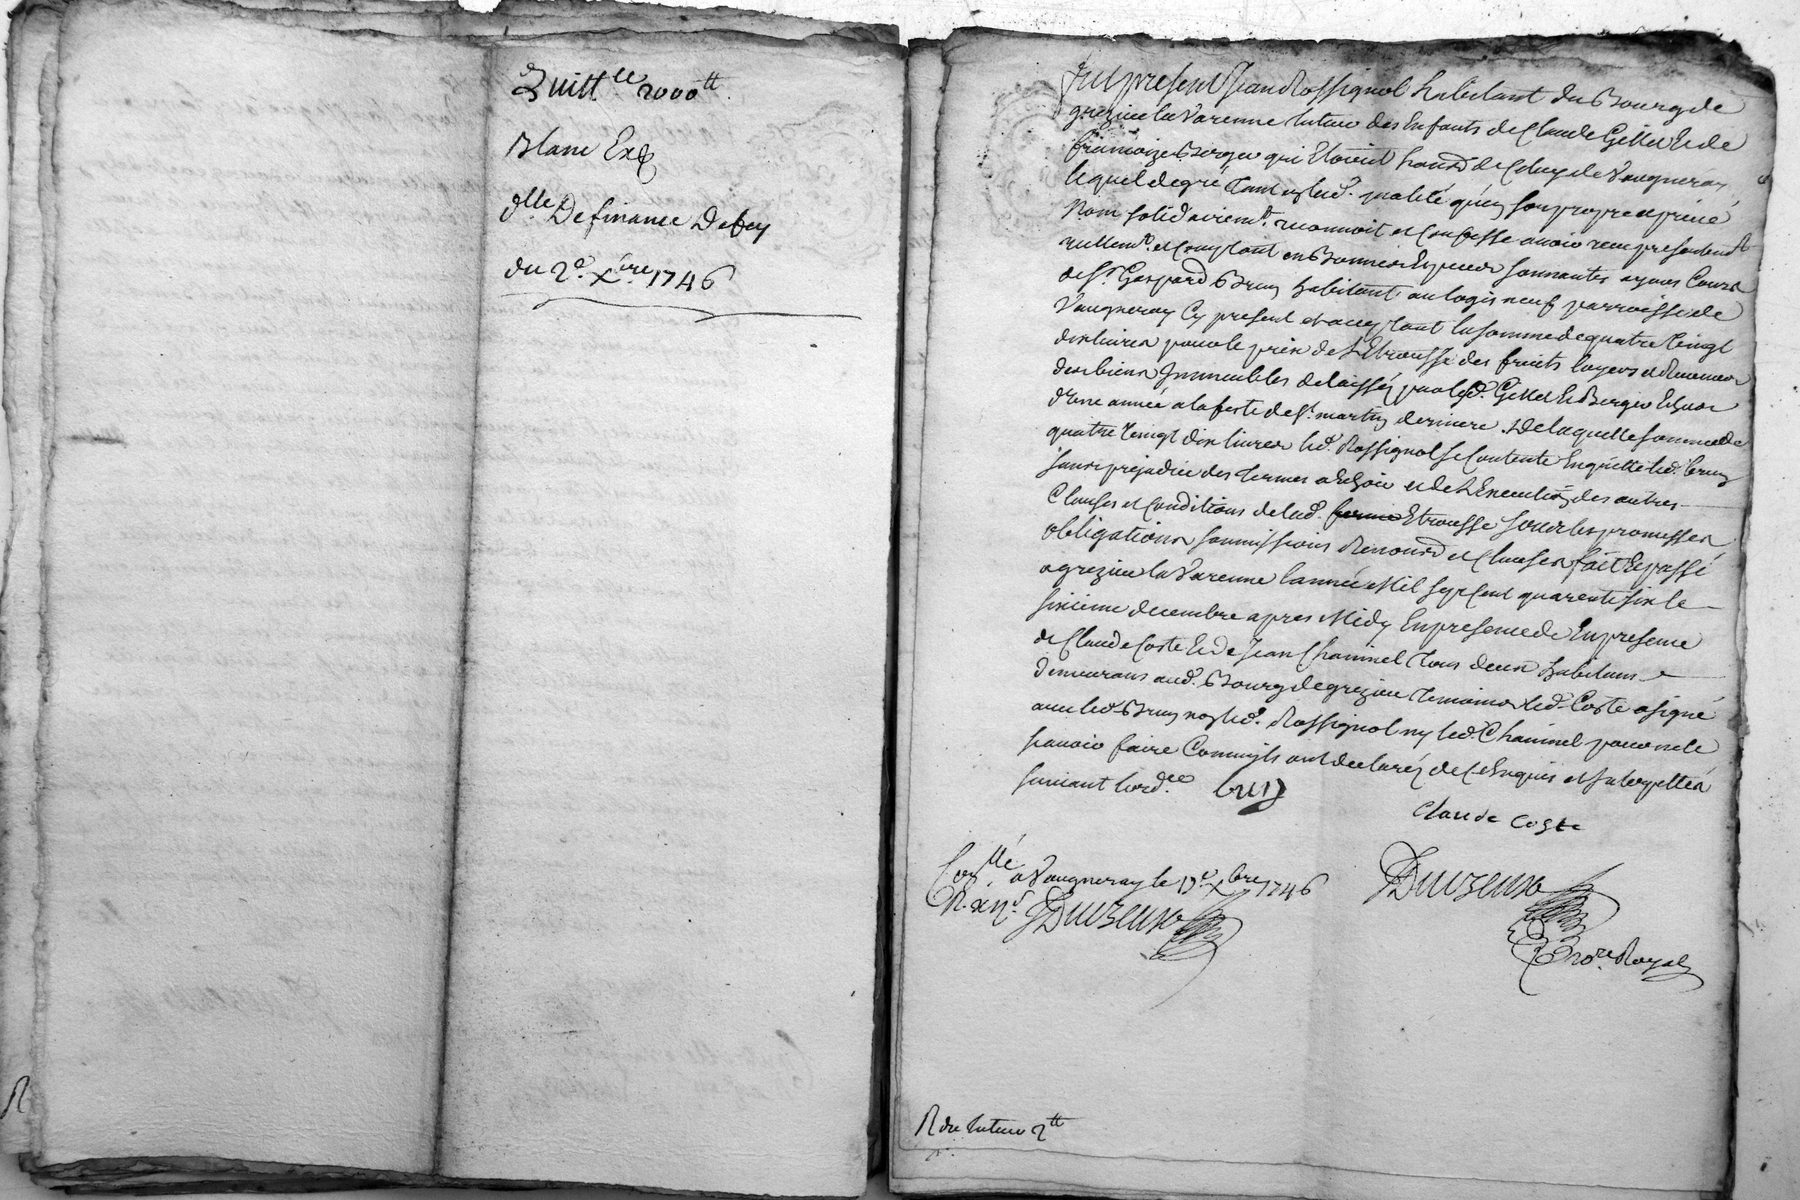 Quitt.ce 2000tt
Blanc Exq
dlle De finance Debey
du 2e Xbre 1746
Fut present Jean Rossignol habitant du Bourg de
grezieu la Varenne tuteur des Enfants de Claude Gillet Et de
francoize Berger qui Etoient hauts de Coluy de Vaugneray
lequel de gré tant en lad. qualité qu'en son propre et privé
Nom solidairemt. reconnoit et confesse avoir reçu presentemt
reellemt. et comptant en Bonnes Especes sonnantes ayant Cours
de Sr. Gaspard Brun habitant au logis neuf parroisse de
Vaugneray Cy present et acceptant la somme de quatre Vingt
dix livres pour le prix de L'Etrousse des fruits loyers et Revenus
des biens Immeubles delaissés par lesd. Gillet Et Berger Echue
d'une année a la feste de St. martin derniere, de laquelle somme de
quatre Vingt dix livres led. Rossignol se Contente En quitte led. brun
sans prejudice des termes a Echoir et de L'Execution des autres
Clauses et Conditions de lad. ferme Etrousse sous les promesses
obligations soumissions Renond et Clauses fait Et passé
a grezieu la Varenne l'année Mil sept cent quarente six le
sixieme decembre apres Midy En presence de En presence
de Claude Coste Et de Jean Chaminel tous deux habitans
demeurans aud. Bourg de grezieu temoins led. Coste a signé
avec led. Brun non led. Rossignol ny led. Chaminel pour ne le
scavoir faire Comm'ils ont declaréz de Ce Enquis et Interpellés
suivant l'ord.ce brun
Claude Coste
Conllé a Vaugneray le 17e Xbre 1746
R. x ns.
nore. Royal
R du tuteur 2tt